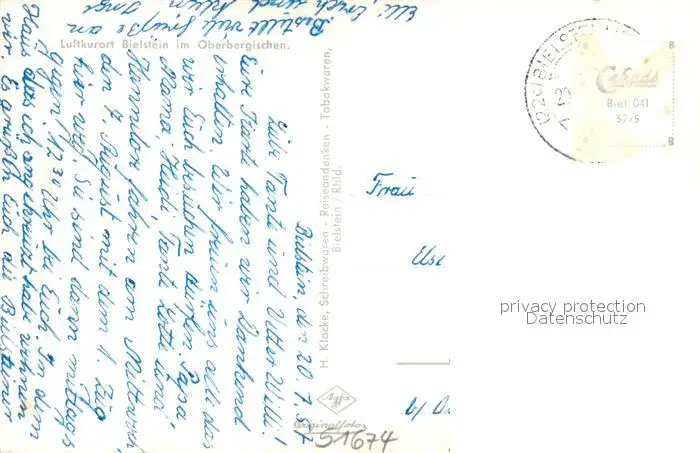 Luftkurort Bielstein im Oberbergischen.
Bielstein, den 20. 7. 57
Liebe Tante und Vetter Willi!
Eure Karte haben wir Dankend
erhalten. Wir freuen uns alle das
wir Euch besuchen dürfen. Papa,
Mama, Tante und
Hannelore fahren am Mittwoch,
den 7. August mit dem 1. Zug
hier weg. Sie sind dann mittags
gegen 12.30 Uhr bei Euch. In dem
Haus das ich angekreuzt habe wohnen
wir. Es grüßt Euch alle Bielsteiner
Elli, Erich und
Bestellt viel Grüße an
H. Klocke, Schreibwaren - Reiseandenken - Tabakwaren,
Bielstein / Rhld.
Agfa
Originalfoto
51674
(22c) BIELSTEIN
Cekade
Biel 041
57/5
Frau
privacy protection
Datenschutz